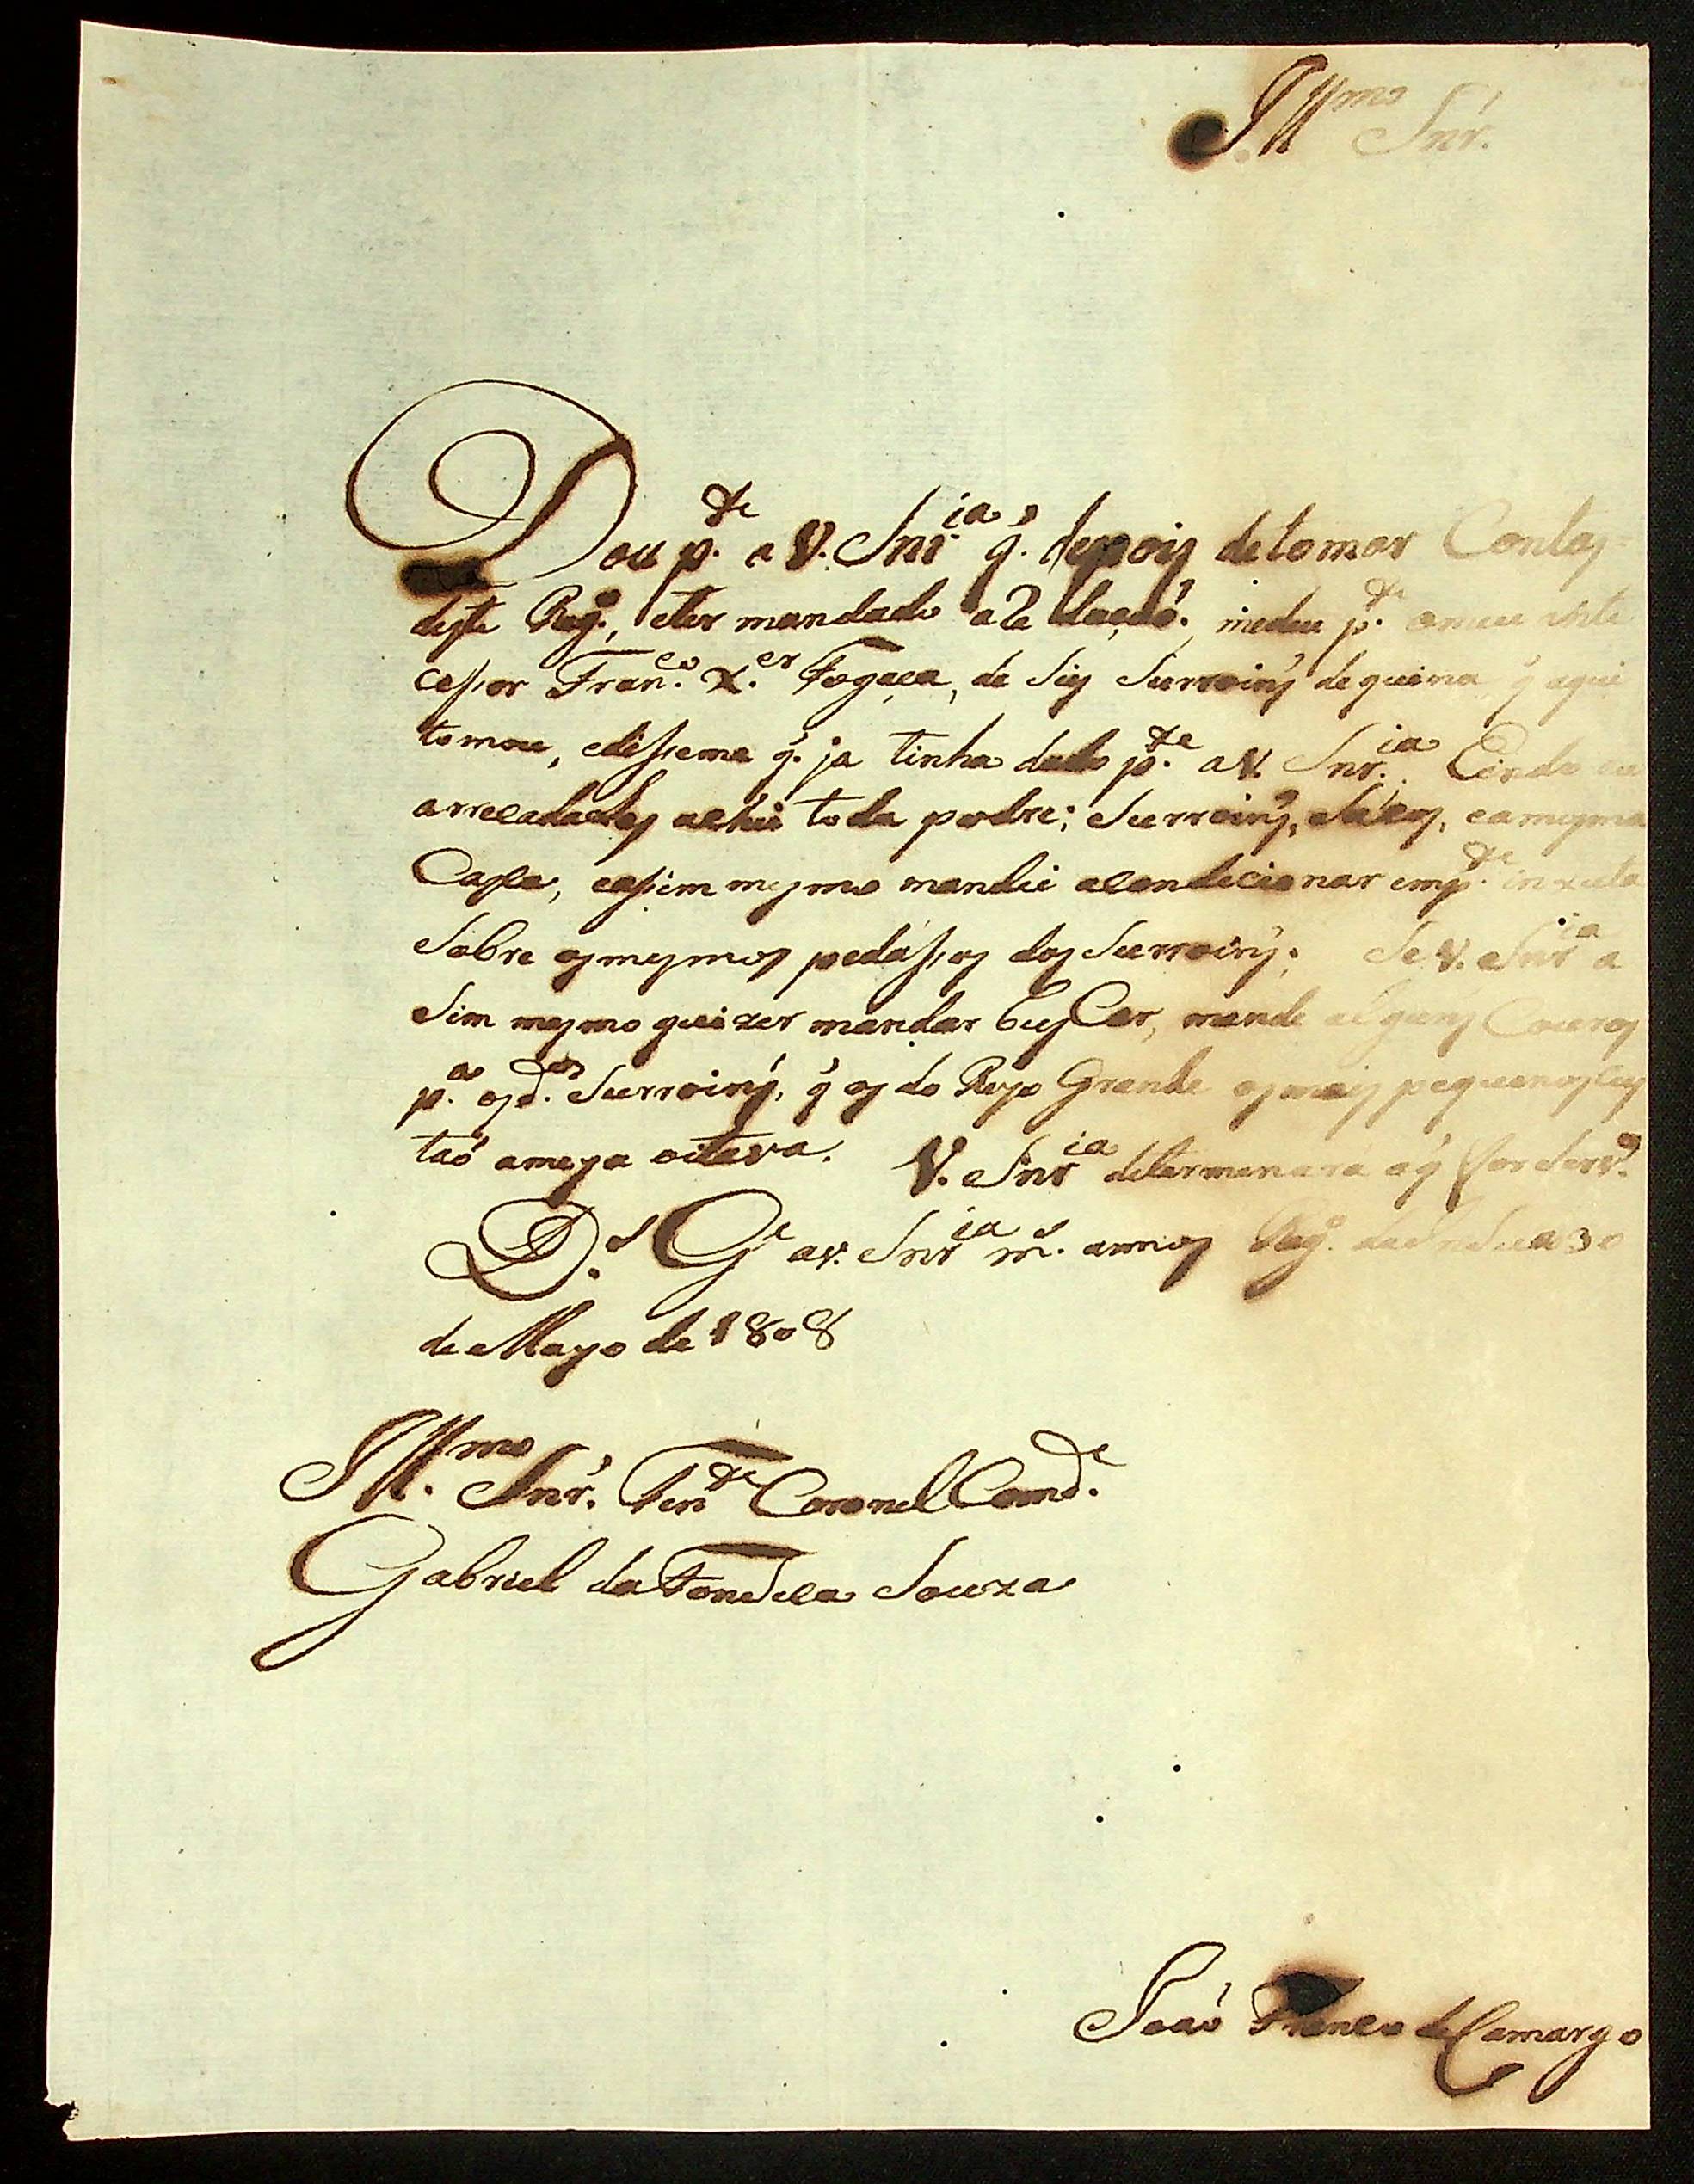 Ill.mo Snr.
Dou p.te a V. Snr.ia q. depois de tomar Contas
deste Reg.o, eter mandado a Relação. medeu p.te omeu Ante
cessor Fran.co X.er Fogaça, de Sies Surroins de quina q aqui
tomou, edisseme q. ja tinha dado p.te aV. Snr.ia Eindo eu
arrecadalas achei toda podre; Surroins, Sacos, eamesma
Casca, eassim mesmo mandei acondicionar emp.te inxuta
Sobre osmesmos pedassos dos Surroins. Se V. Snr.ia a
Sim mesmo quizer mandar busCar, mande alguns Couros
p.a osd.os Surroins, q os do Rezo Grande osmais pequenos Cus
taõ ameya oitava. V. Snr.ia determenara oq for Serv.o
D.s G.e aV. Snr.ia m.s annos Reg.o 30
de Mayo de 1808
Ill.mo Snr. Ten.te Coronel Comd.e
Gabriel da Fonseca Souza
Joaõ Franco de Camargo